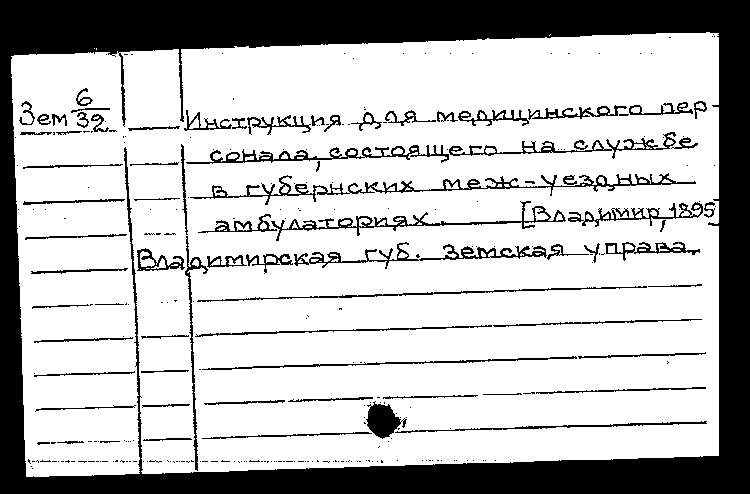 Зем 6/32
Инструкция для медицинского пер-
сонала, состоящего на службе
в губернских меж-уездных
амбулаториях. [Владимир, 1895]
Владимирская губ. земская управа.